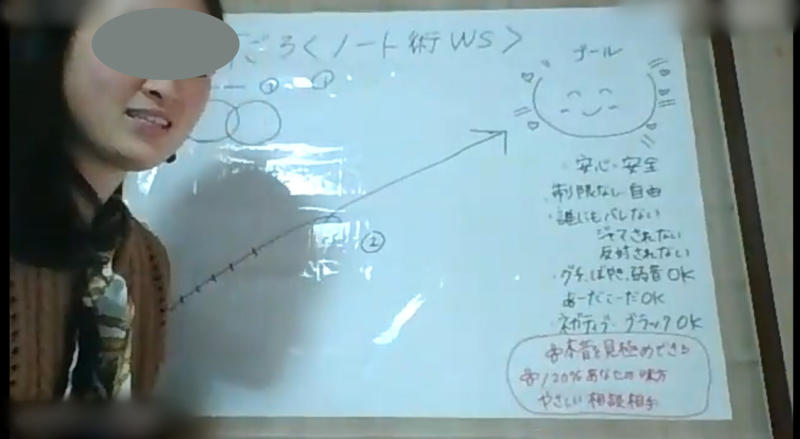 ごろくノート術WS>
③ ①
ゴール
②
・安心・安全
・制限なし自由
・誰にもバレない
ジャマされない
反対されない
・グチ、ぼやき、弱音OK
あーだこーだOK
・ネガティブ・ブラックOK
本音を見極めできる
120%あなたの味方
やさしい相談相手